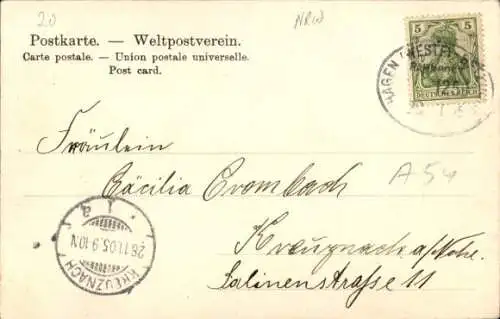 20
NRW
Postkarte. — Weltpostverein.
Carte postale. — Union postale universelle.
Post card.
5 5
DEUTSCHES REICH
HAGEN (WESTF)
Fräulein
Cäcilia Crombach
A54
Kreuznach a/Nahe.
Salinenstrasse 11
KREUZNACH
26.11.05.9-10N